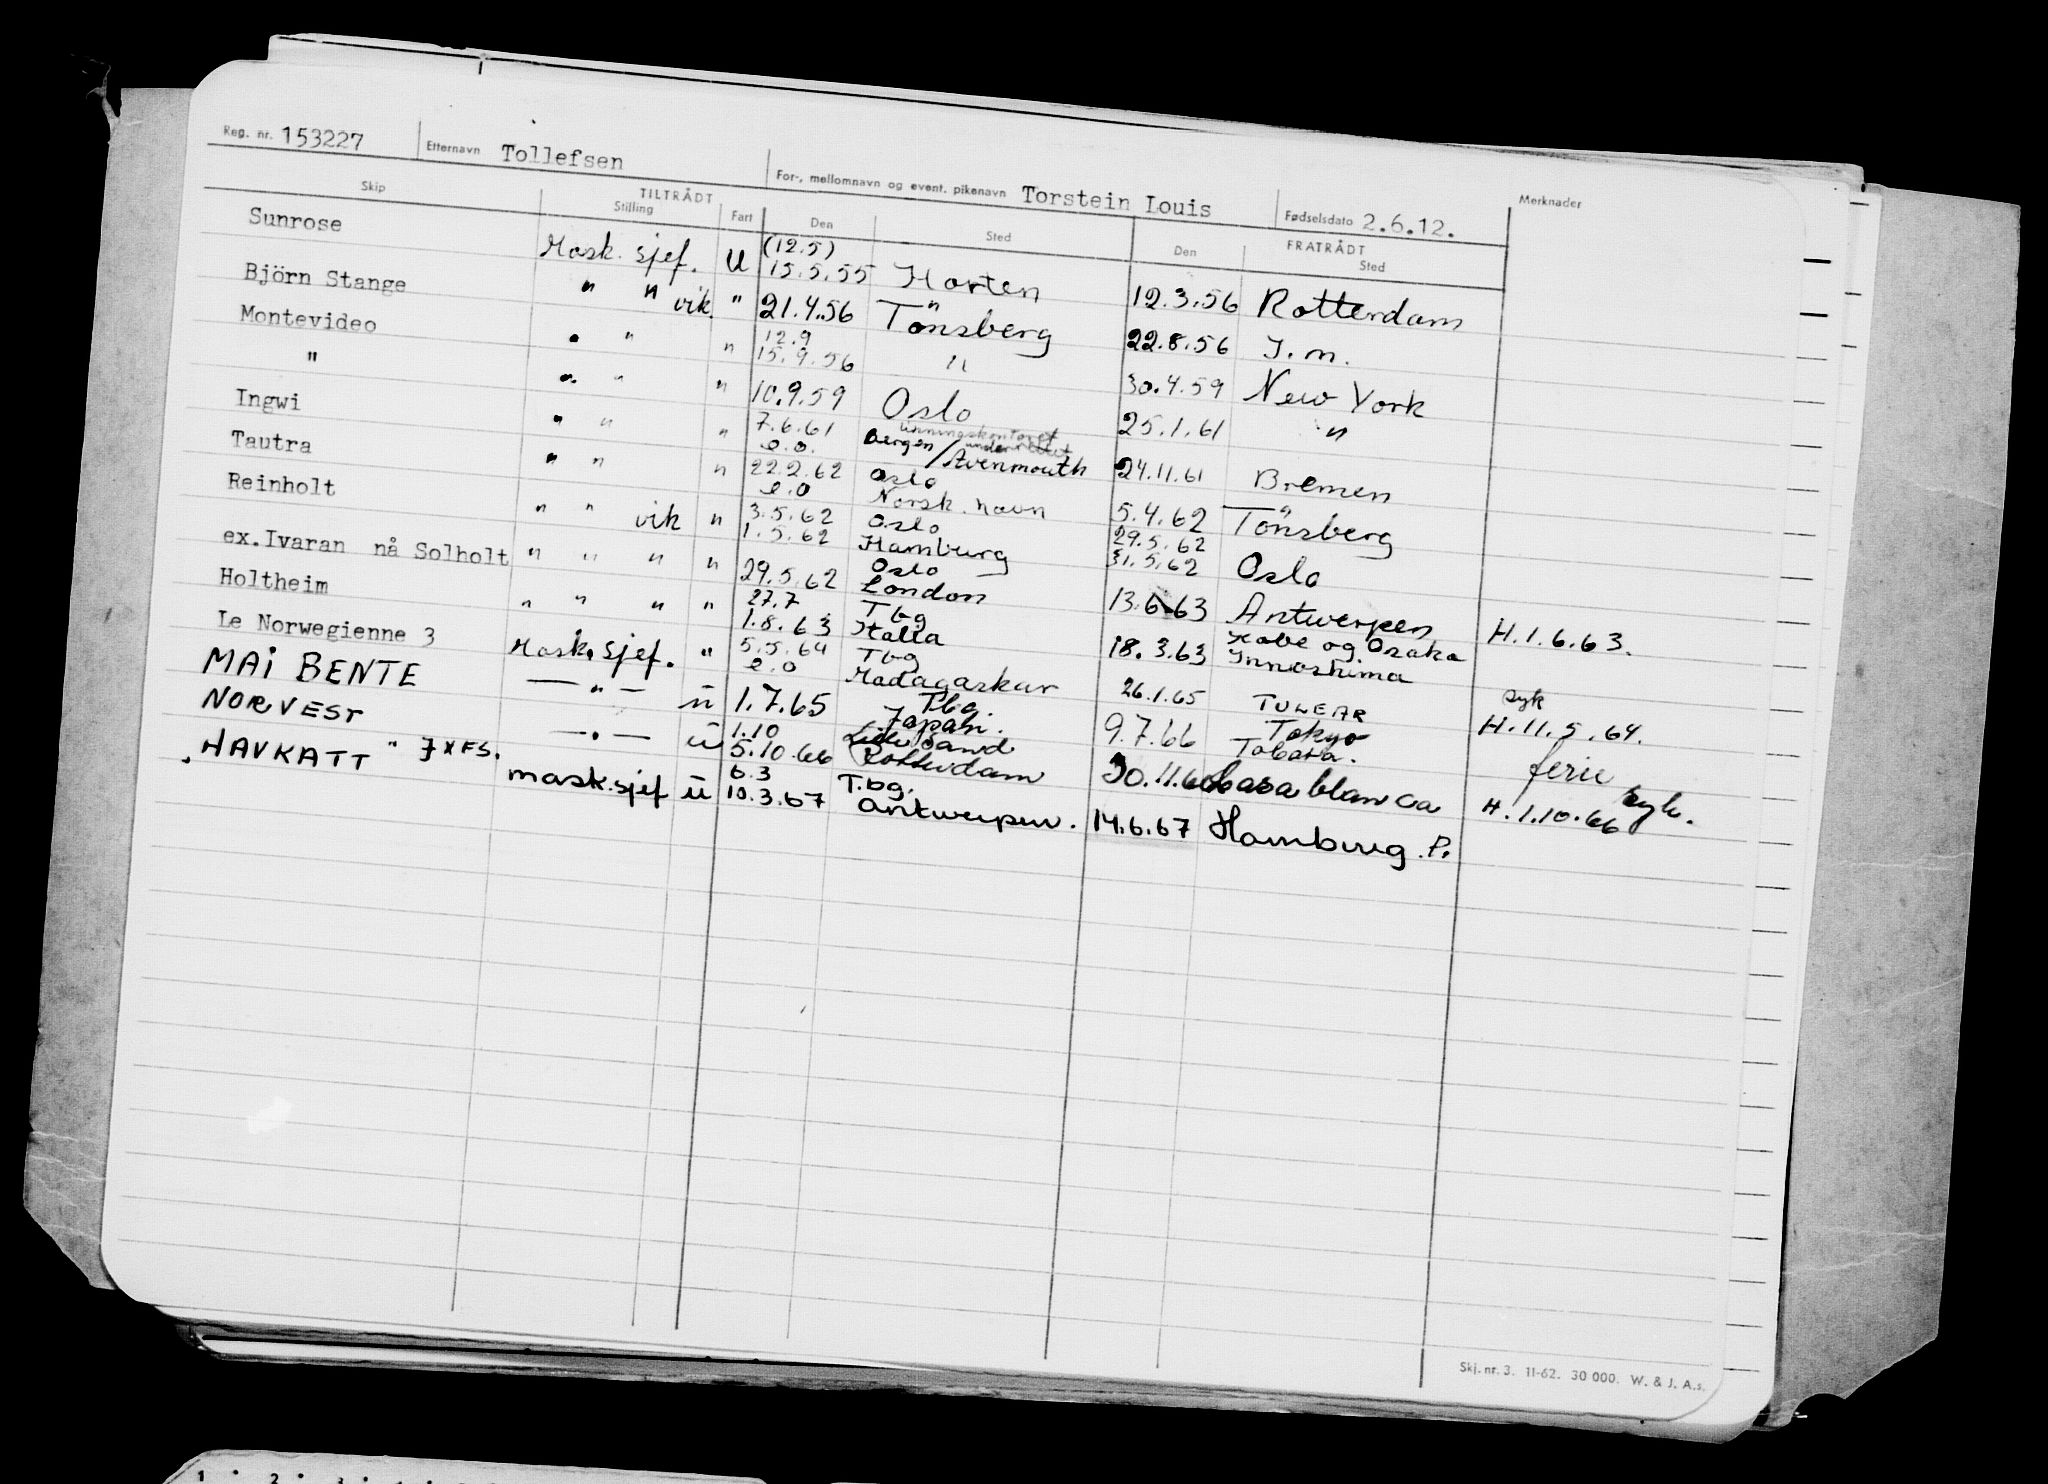 Reg. nr. 153227 Etternavn Tollefsen For-, mellomnavn og event. pikenavn Torstein Louis Fødselsdato 2.6.12. Merknader
Skip TILTRÅDT Stilling Fart Den Sted FRATRÅDT Den Sted
Sunrose Mask. sjef. U (12.5) 15.5.55 Horten 12.3.56 Rotterdam
Björn Stange " " vik. " 21.4.56 Tönsberg 22.8.56 I.m.
Montevideo " " " 12.9 15.9.56 " 30.4.59 New York
" " " " 10.9.59 Oslo 25.1.61 "
Ingwi " " " 7.6.61 e.o. Bergen / Avenmouth 24.11.61 Bremen
Tautra " " " 22.2.62 e.o Oslo Norsk. havn 5.4.62 Tönsberg
Reinholt " " vik " 3.5.62 1.5.62 Oslo Hamburg 29.5.62 31.5.62 Oslo
ex.Ivaran nå Solholt " " " " 29.5.62 Oslo London 13.6.63 Antwerpen H.1.6.63.
Holtheim " " " " 27.7 1.8.63 Tbg Italia 18.3.63 Kobe og Osaka Innoshima
Le Norwegienne 3 Mask. sjef. " 5.5.64 e.o Tbg Madagaskar 26.1.65 TULEAR syk H.11.5.64.
MAI BENTE — " — ü 1.7.65 Tbg. Japan. 9.7.66 Tokyo Tobata. ferie
NORVEST — " — ü 1.10 5.10.66 Rotterdam 30.11.66 Casablanca H.1.10.66 syk.
"HAVKATT" JXFS. mask.sjef ü 6.3 10.3.67 T.bg. Antwerpen. 14.6.67 Hamburg. P.
Skj. nr. 3. 11-62. 30 000. W. & J. A.s.
1 2 3